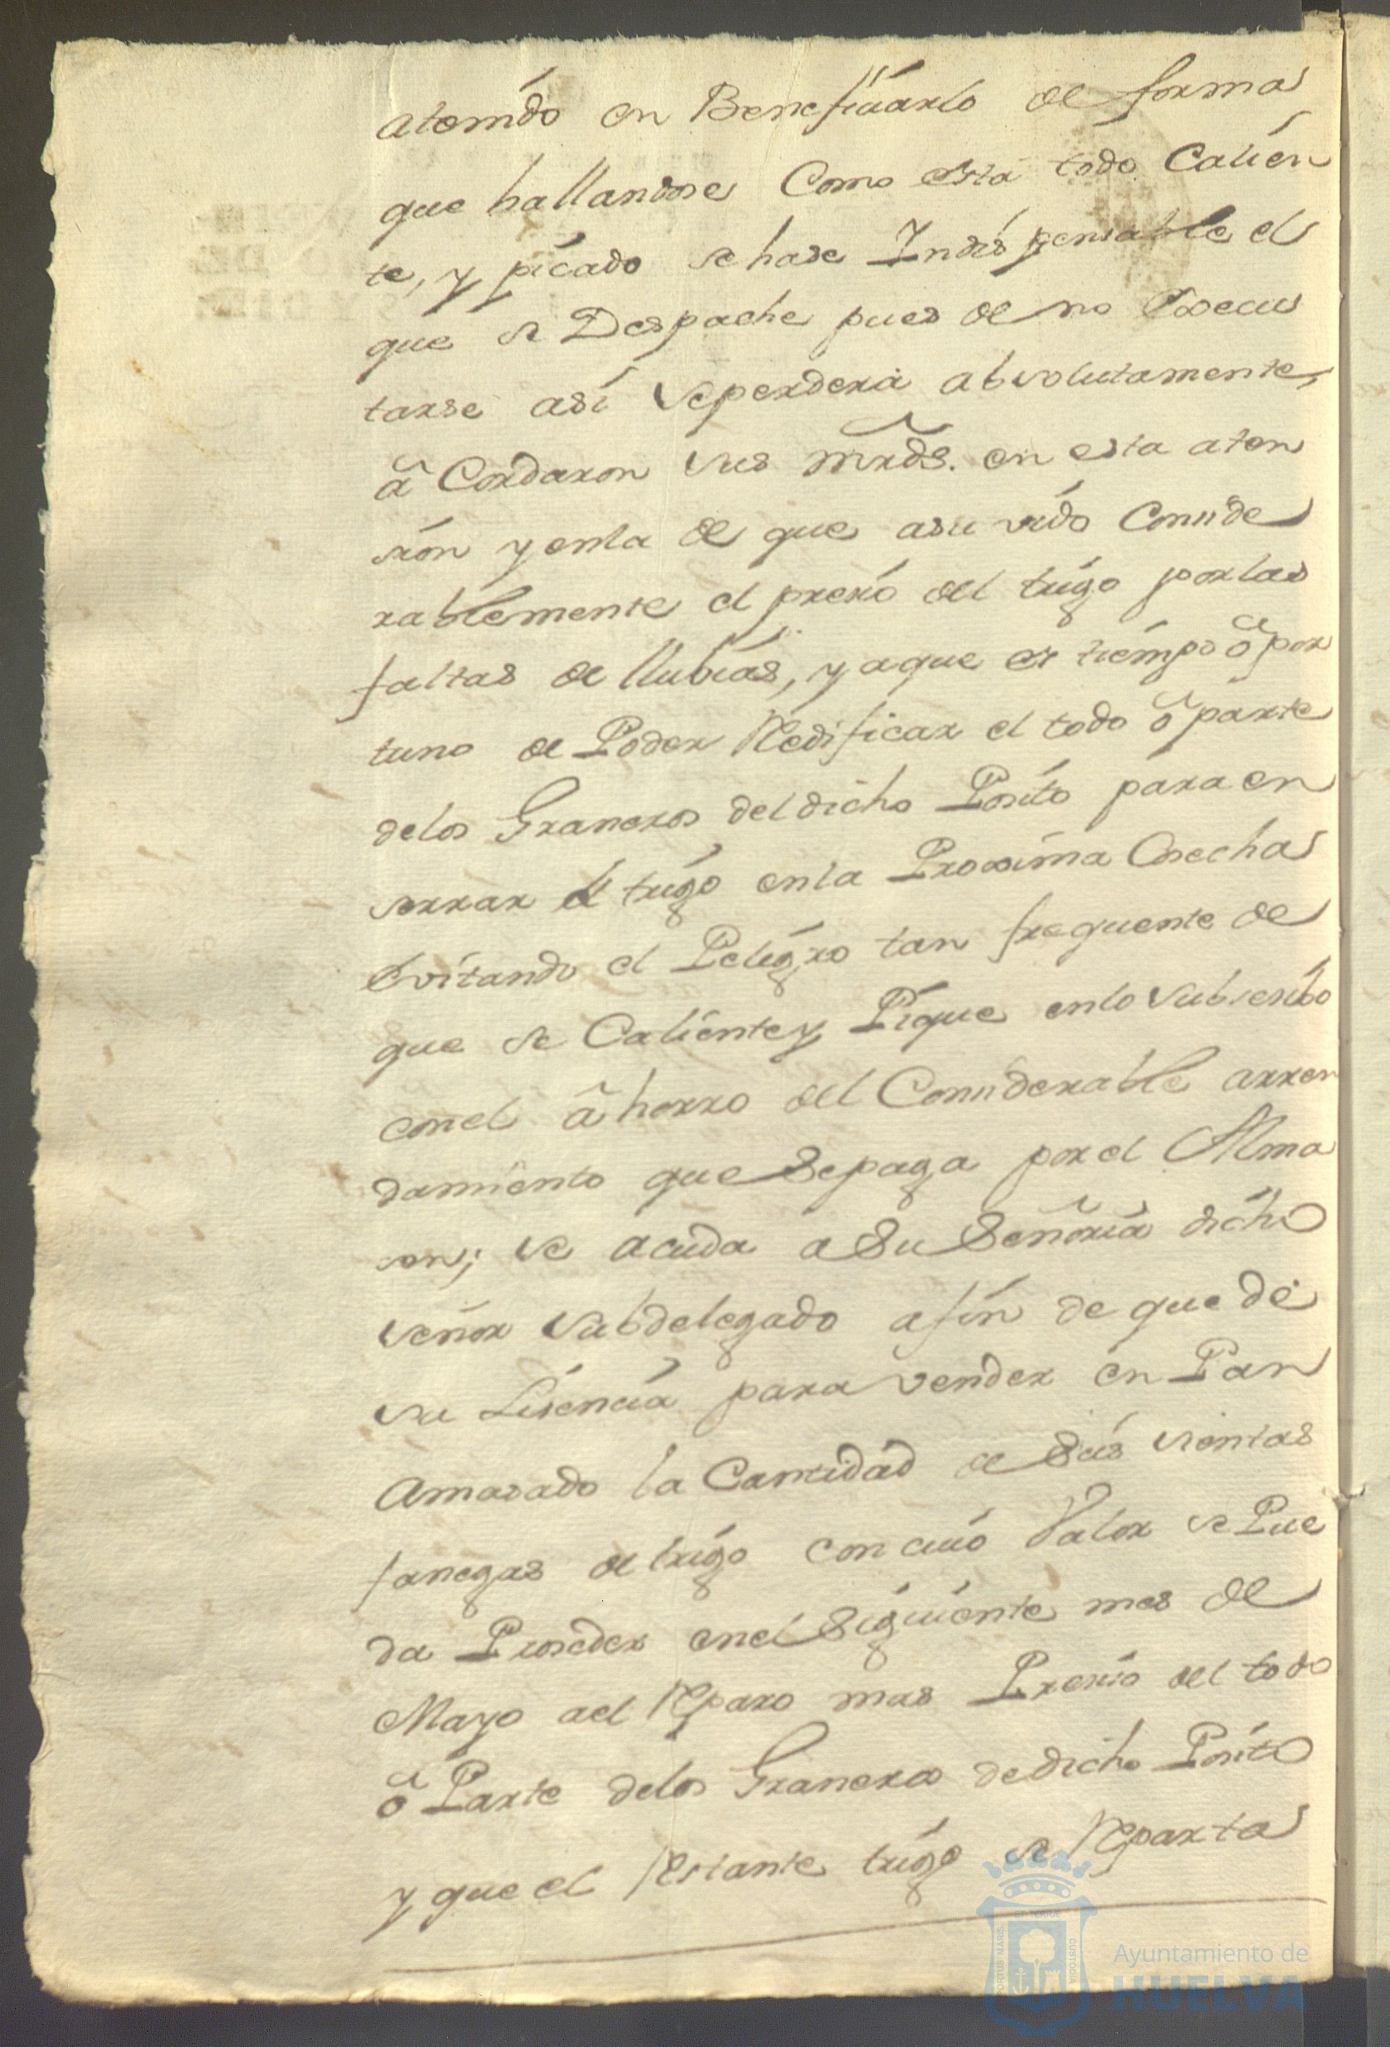 atenido en Beneficiarlo de forma
que hallandose Como está todo Calien
te, y picado se hase Indispensable el
que se Despache pues de no Execu
tarse así seperdera absolutamente,
â Cordaron sus mrds. en esta aten
sion y enla de que asuvido Conside
rablemente el presio del trigo porlas
faltas de llubias, yaque es tiempo ô por
tuno de Poder Redificar el todo ô parte
delos Graneros deldicho Posito para en
serrar el trigo enla Proxima Cosecha
Evitando el Peligro tan frequente de
que se Caliente y Pique enlo Subsesibo
conel â horro del Considerable arren
damiento que Sepaga por el Alma
sen; se acuda a Su Señoria dicho
señor Subdelegado afin de que de
su Lisencia para vender en Pan
Amasado la Cantidad de Seis sientas
fanegas de trigo con cuio Valor se Pue
da Proseder enel Siguiente mes de
Mayo ael Reparo mas Presiso del todo
ô Parte delos Graneros dedicho Posito
y que el Restante trigo se Reparta
Ayuntamiento de
HUELVA